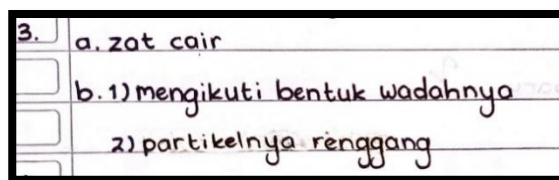 3. a. zat cair
b. 1) mengikuti bentuk wadahnya
2) partikelnya renggang